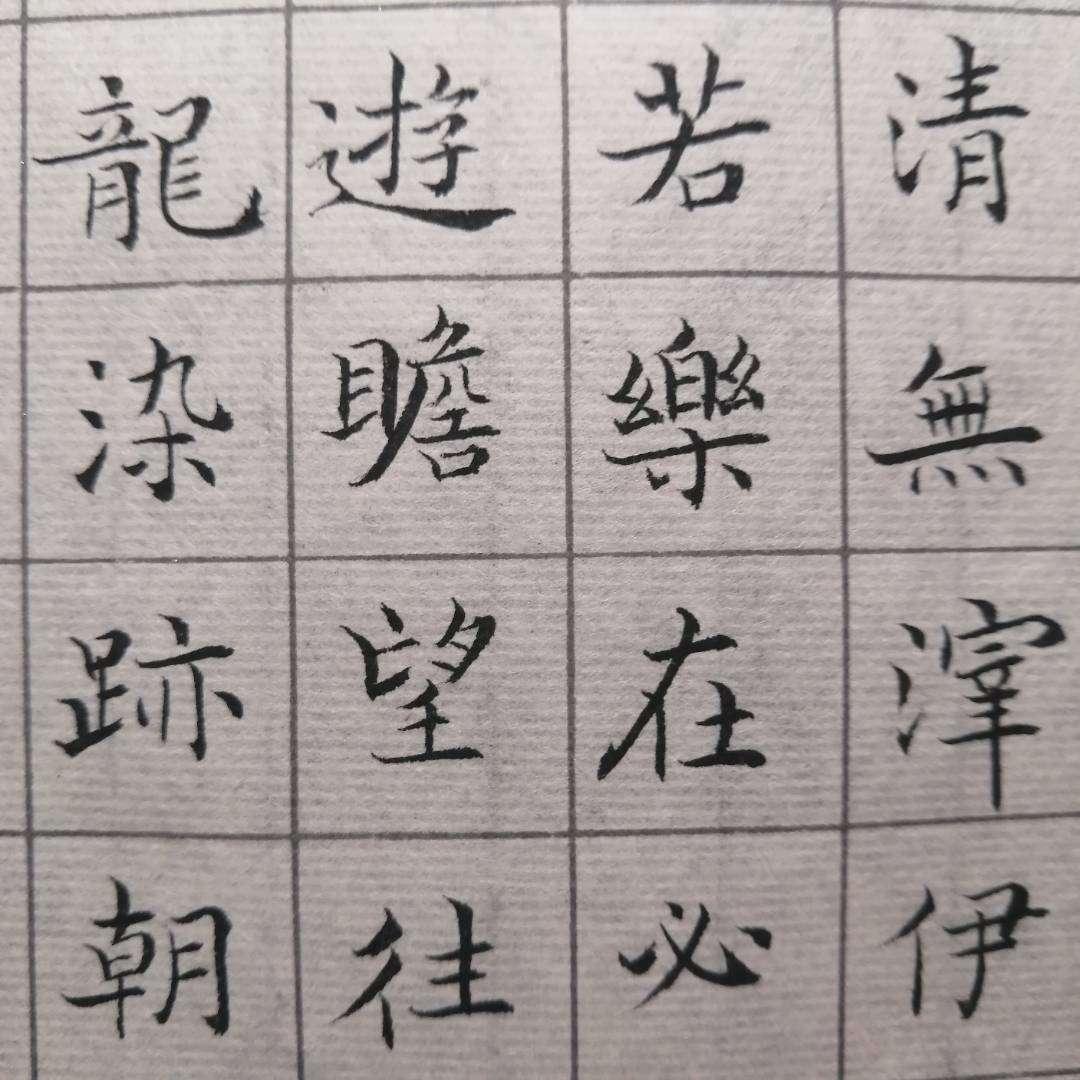 清無滓伊
若樂在必
遊瞻望往
龍染跡朝